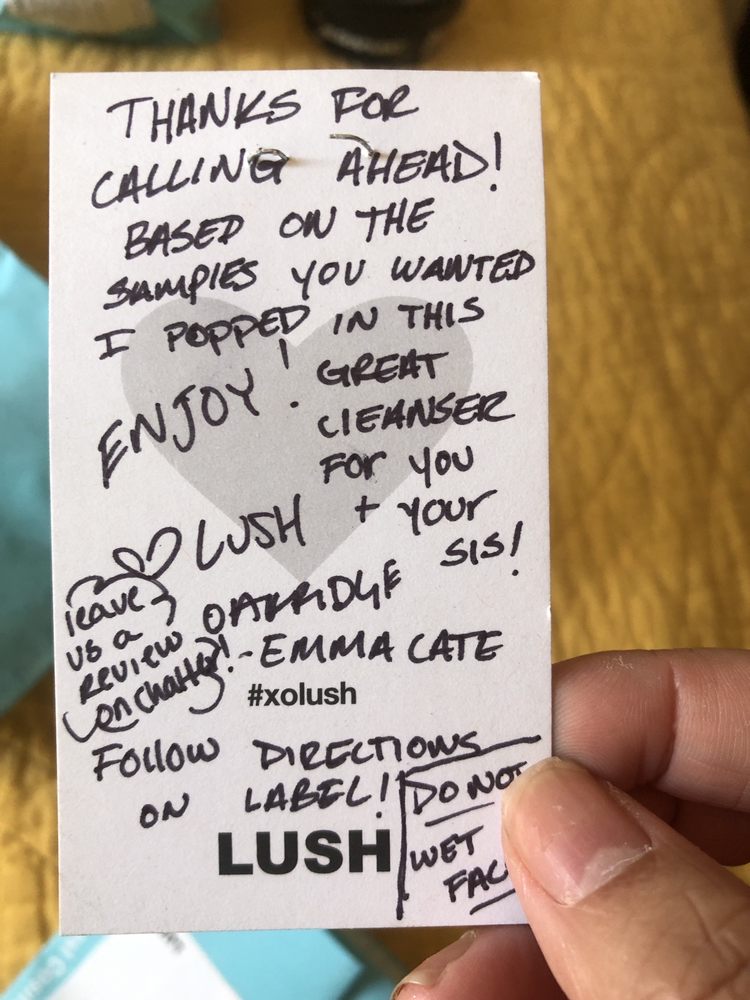 THANKS FOR
CALLING AHEAD!
BASED ON THE
SAMPLES YOU WANTED
I POPPED IN THIS
GREAT
CLEANSER
FOR YOU
+ YOUR
SIS!
ENJOY!
LUSH
OAKRIDGE
-EMMA CATE
leave
us a
REVIEW
on chatty!
#xolush
FOLLOW DIRECTIONS
ON LABEL!
DO NOT
WET
LUSH